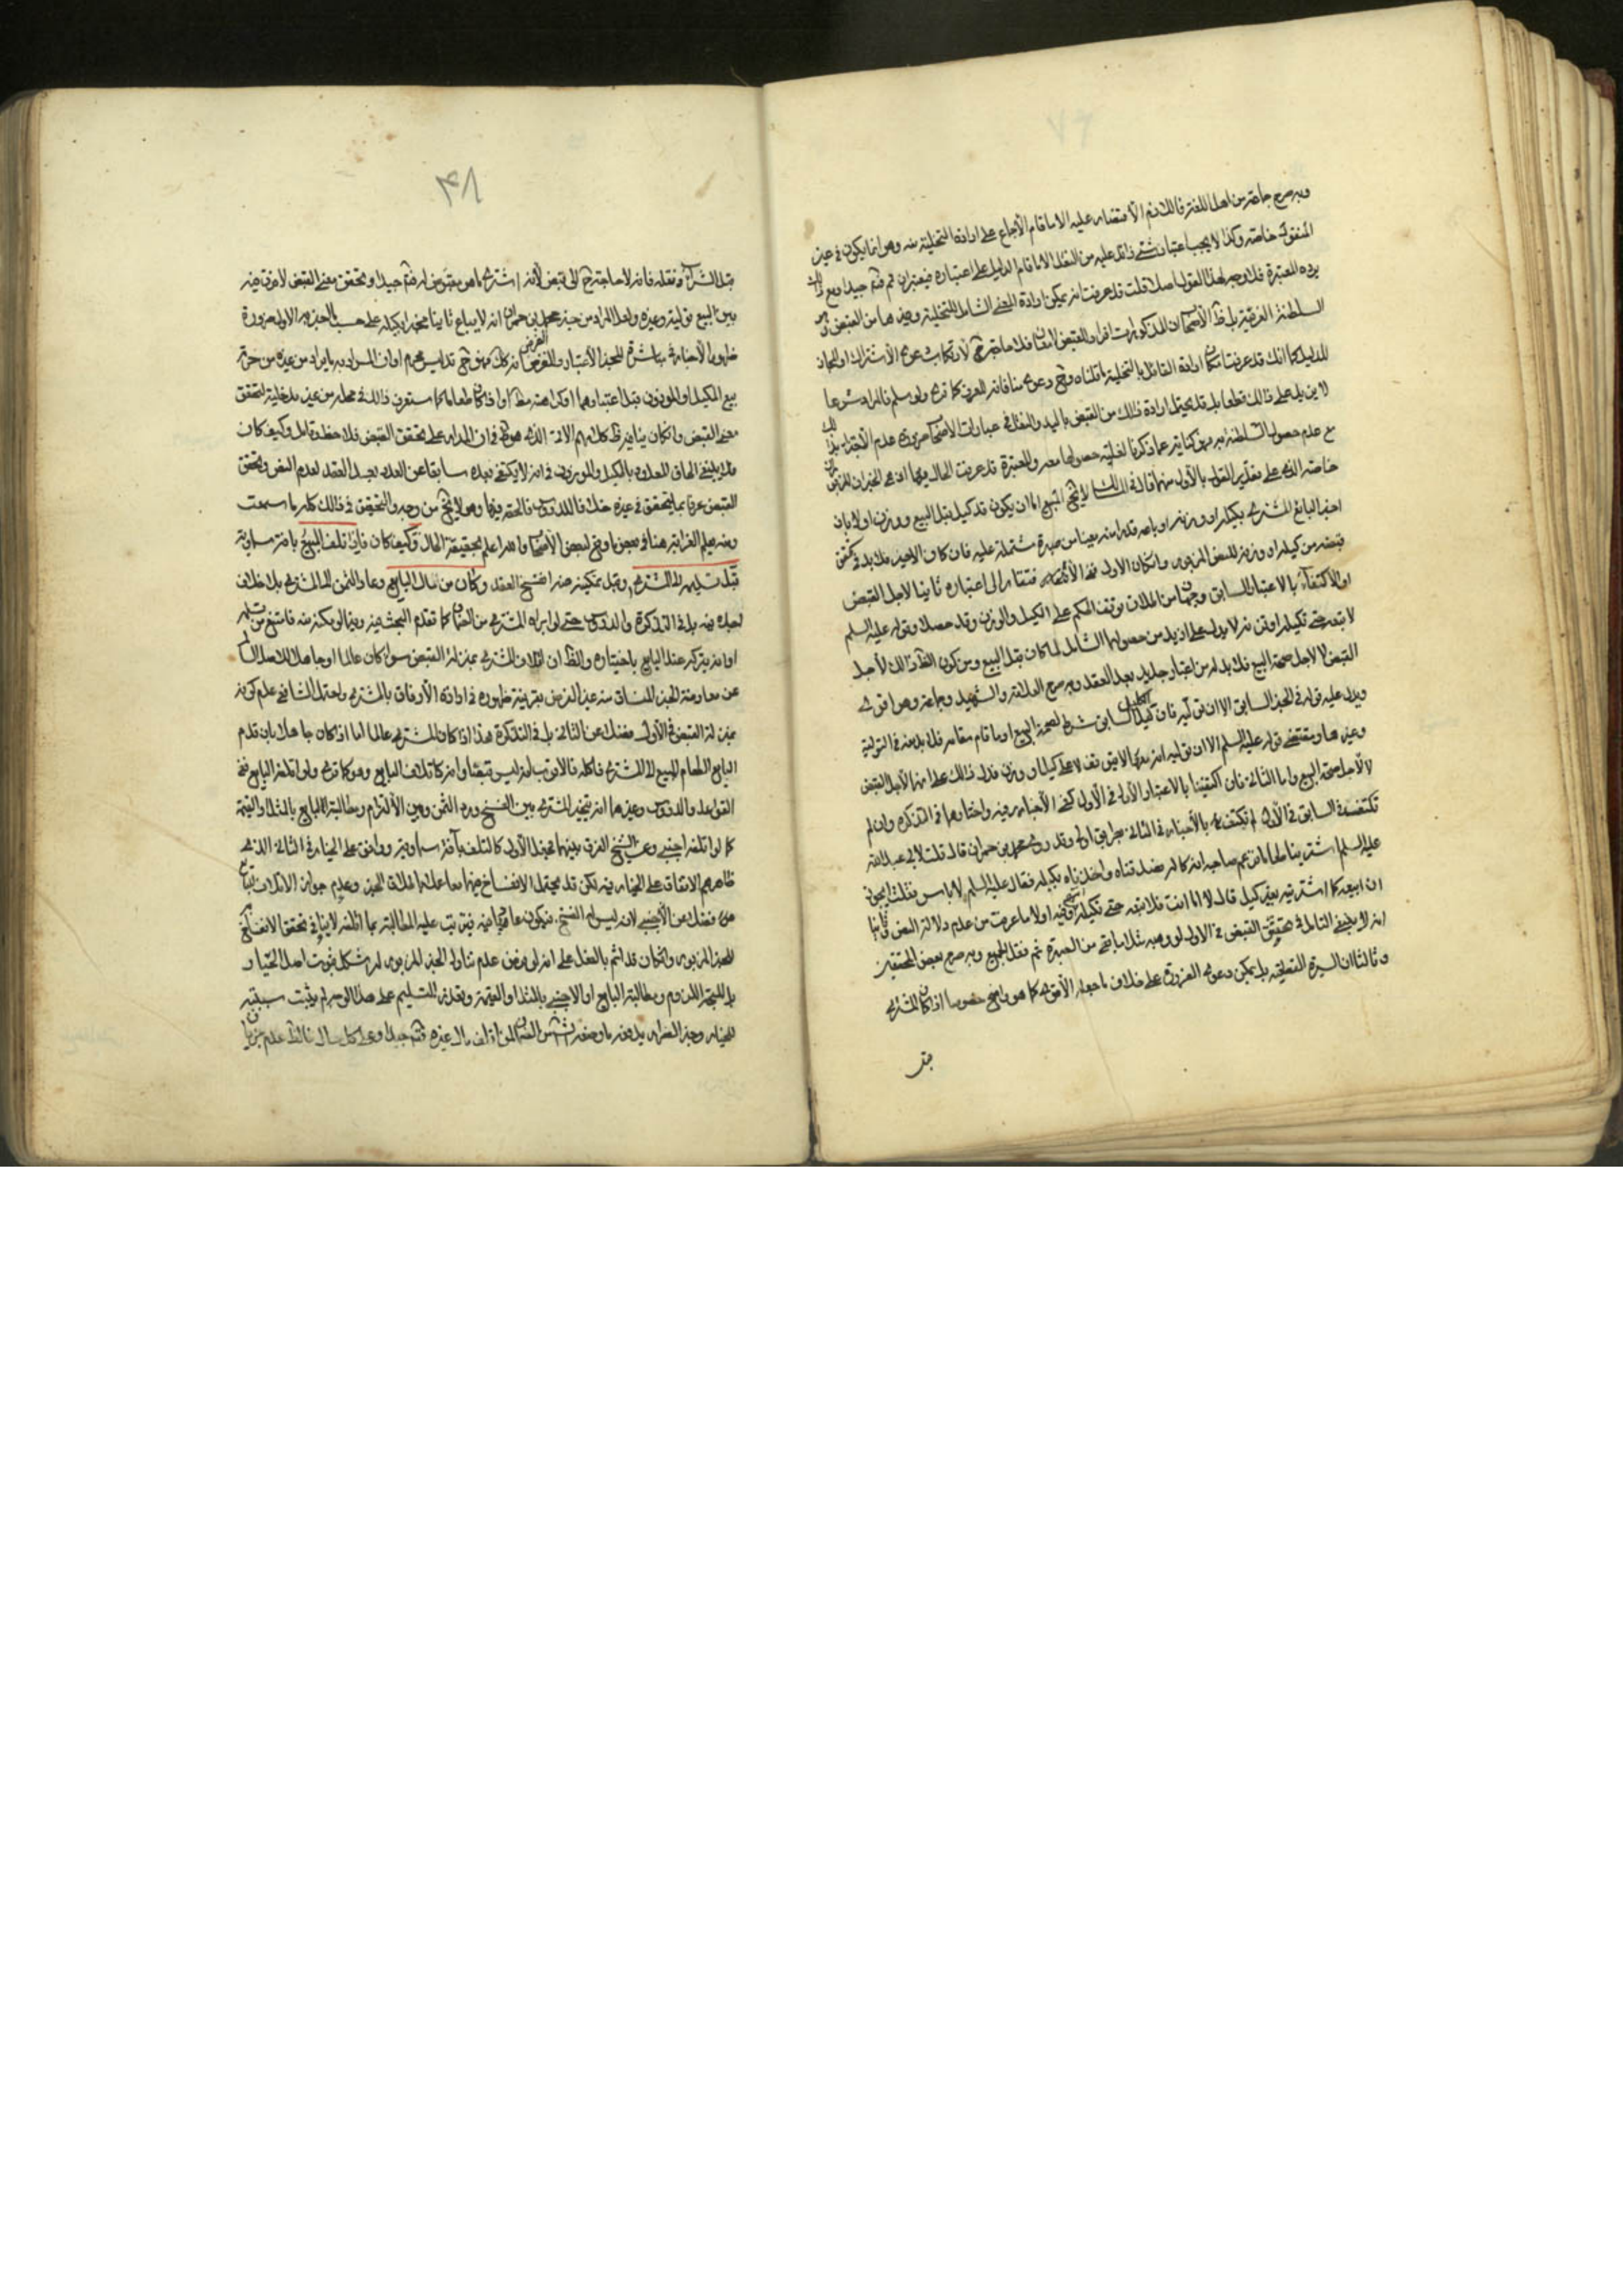 وبه صرح جماعة من اهل اللغة فاللازم الاقتصار عليه الا ما قام الاجماع على ارادة التخلية منه وهو انما يكون في غير
المنقول خاصة وكذا لا يجب اعتبار شئ زائد عليه من النقل الا ما قام الدليل على اعتباره فيعتبر ان تم فتم جيدا ومع
يده المعتبرة فلا وجه لهذا القول اصلا قلت قد عرفت انه يمكن ارادة المعنى الشامل للتخلية وغيرها من القبض
السلطنة العرفية بل ظ الاصحاب ان المذكورات افراد القبض فلا حاجة ح لارتكاب دعوى الاشتراك او المجاز
للدليل كما انك قد عرفت امكان ارادة القائل بالتخلية ما قلناه وح دعوى منافاته للعرف كما ترى ولو سلم فالمراد شرعا
لا يزيد على ذلك قطعا بل قد يحتمل ارادة ذلك من القبض باليد والنقل في عبارات الاصحاب عدم الاجتزاء
مع عدم حصول السلطنة به فهو كناية عما ذكرنا لغلبة حصولها معه والمعتبرة قد عرفت الحال فيها
خاصة الذي على تقدير القول بالاول منهما قال في المسالك لا يخلو المبيع اما ان يكون قد كيل قبل البيع ووزن او لا بان
اخبر البائع المشتري بكيله او وزنه او باعه قدرا منه معينا من صبرة مشتملة عليه فان كان الاخير فلا بد في تحقق
قبضه من كيله او وزنه للنص المزبور وان كان الاول ففي الافتقار الى اعتباره ثانيا لاجل القبض
او الاكتفاء بالاعتبار السابق وجهان من اطلاق توقف الحكم على الكيل والوزن وقد حصلا وقوله عليه السلم
لا تبعه حتى تكيله او تزنه لا يدل على ازيد من حصولهما الشامل لما كان قبل البيع ومن كون الظ ذلك لاجل
القبض لا لاجل صحة البيع فلا بد له من اعتبار جديد بعد العقد وبه صرح العلامة والشهيد وجماعة وهو اقوى
ويدل عليه قوله في الخبر السابق الا ان توليه فان الكيل السابق شرط لصحة البيع او ما قام مقامه فلا بد منه في التولية
وغيرها ومقتضى قوله عليه السلم الا ان توليه انه معها لا يتوقف على كيل او وزن فدل ذلك على انهما لاجل القبض
لا لاجل صحة البيع واما الثاني فان اكتفينا بالاعتبار الاول في الاول كفى الاخبار فيه واختاره في التذكرة وان لم
نكتف بالسابق في الاول لم نكتف بالاخبار في الثاني بطريق اولى وقد روى محمد بن حمران قال قلت لابي عبد الله
عليه السلم اشترينا طعاما فزعم صاحبه انه كاله فصدقناه واخذناه بكيله فقال عليه السلم لا باس فقلت ايجوز
ان ابيعه كما اشتريته بغير كيل قال لا اما انت فلا تبعه حتى تكيله وفيه اولا ما عرفت من عدم دلالة النص وثانيا
انه لا ينبغي التامل في تحقق القبض في الاول لو وهبه مثلا ما بقى من الصبرة ثم نقل الجميع وبه صرح بعض المحققين
وثالثا ان السيرة القطعية بل يمكن دعوى الضرورة على خلاف ما جعله الاقوى كما هو واضح خصوصا اذا كان المشتري
قبل
٤٨
قبل الشراء ونقله فانه لا حاجة ح الى قبض لانه اشترى ما هو مقبوض له فتم جيدا وتحقق معنى القبض لا فرق فيه
بين البيع تولية وغيره ولعل المراد من خبر محمد بن حمران انه لا يباع ثانيا مخبرا بكيله على حسب الخبر به الاول ضرورة
ظهور الاخبار في مباشرة المخبر الاعتبار والفرض انه كك فهو ح تدليس محرم او ان المراد به ما يراد من غيره من حرمة
بيع المكيل او الموزون قبل اعتبارهما او كراهته مط او اذا كان طعاما كما ستعرف ذلك في محله من غير مدخلية لتحقق
معنى القبض وان كان ينافيه ظ كلامهم الاتي الذي هو ظ في ان المدار على تحقق القبض فلاحظ وتامل وكيف كان
فلا ينبغي الحاق المعدود بالمكيل والموزون في انه لا يكتفى بعده سابقا عن العدد بعد العقد لعدم النص وتحقق
القبض عرفا بما يتحقق في غيره خلافا للدروس فالحقه بهما وهو لا يخلو من وجه والتحقيق في ذلك كله ما سمعت
ومنه يعلم الغرابة هنا في بعض ما وقع لبعض الاصحاب والله اعلم بحقيقة الحال وكيف كان فاذا تلف المبيع بافة سماوية
قبل تسليمه الى المشتري وقبل تمكينه منه انفسخ العقد وكان من مال البايع وعاد الثمن للمشتري بلا خلاف
اجده فيه بل في التذكرة والدروس حتى لو ابراه المشتري من الضمان كما تقدم البحث فيه وفيما لو مكنه منه فامتنع من تسلمه
او امره بتركه عند البايع باختياره والظ ان اتلاف المشتري بمنزلة القبض سواء كان عالما او جاهلا للاصل السالم
عن معارضة الخبر المنساق منه غير الفرض بقرينة ظهوره في ارادة الارفاق بالمشتري واحتمل الشافعي عدم كونه
بمنزلة القبض في الاول فضلا عن الثاني بل في التذكرة هذا اذا كان المشتري عالما اما اذا كان جاهلا بان قدم
البايع الطعام المبيع الى المشتري فاكله فالاقرب انه ليس قبضا وانه كاتلاف البايع وهو كما ترى ولو اتلفه البايع ففي
القواعد والدروس وغيرهما انه يتخير المشتري بين الفسخ ورد الثمن وبين الالتزام ومطالبة البايع بالمثل او القيمة
كما لو اتلفه اجنبي وعن الشيخ الفرق بينهما فجعل الاول كالتلف بافة سماوية ووافق على الخيار في الثاني الذي
ظاهرهم الاتفاق على الخيار فيه لكن قد يحتمل الانفساخ فيهما معا عملا باطلاق الخبر وعدم جواز الاتلاف للبايع
فضلا عن الاجنبي لانه ليس له الفسخ فيكون عاديا فيه فيترتب عليه المطالبة بما اتلفه لا ينافي تحقق الانفساخ
للخبر المزبور وان كان قد اثم بالفعل على انه لو فرض عدم تناول الخبر المزبور له شكل ثبوت اصل الخيار
بل المتجه اللزوم ومطالبة البايع او الاجنبي بالمثل او القيمة وتعذر التسليم على هذا الوجه لم يثبت سببيته
للخيار وخبر الضرار يدفعه ما وضعه الشارع من الضمان لمن اتلف مال غيره فتم جيدا وعلى كل حال فالظ عدم